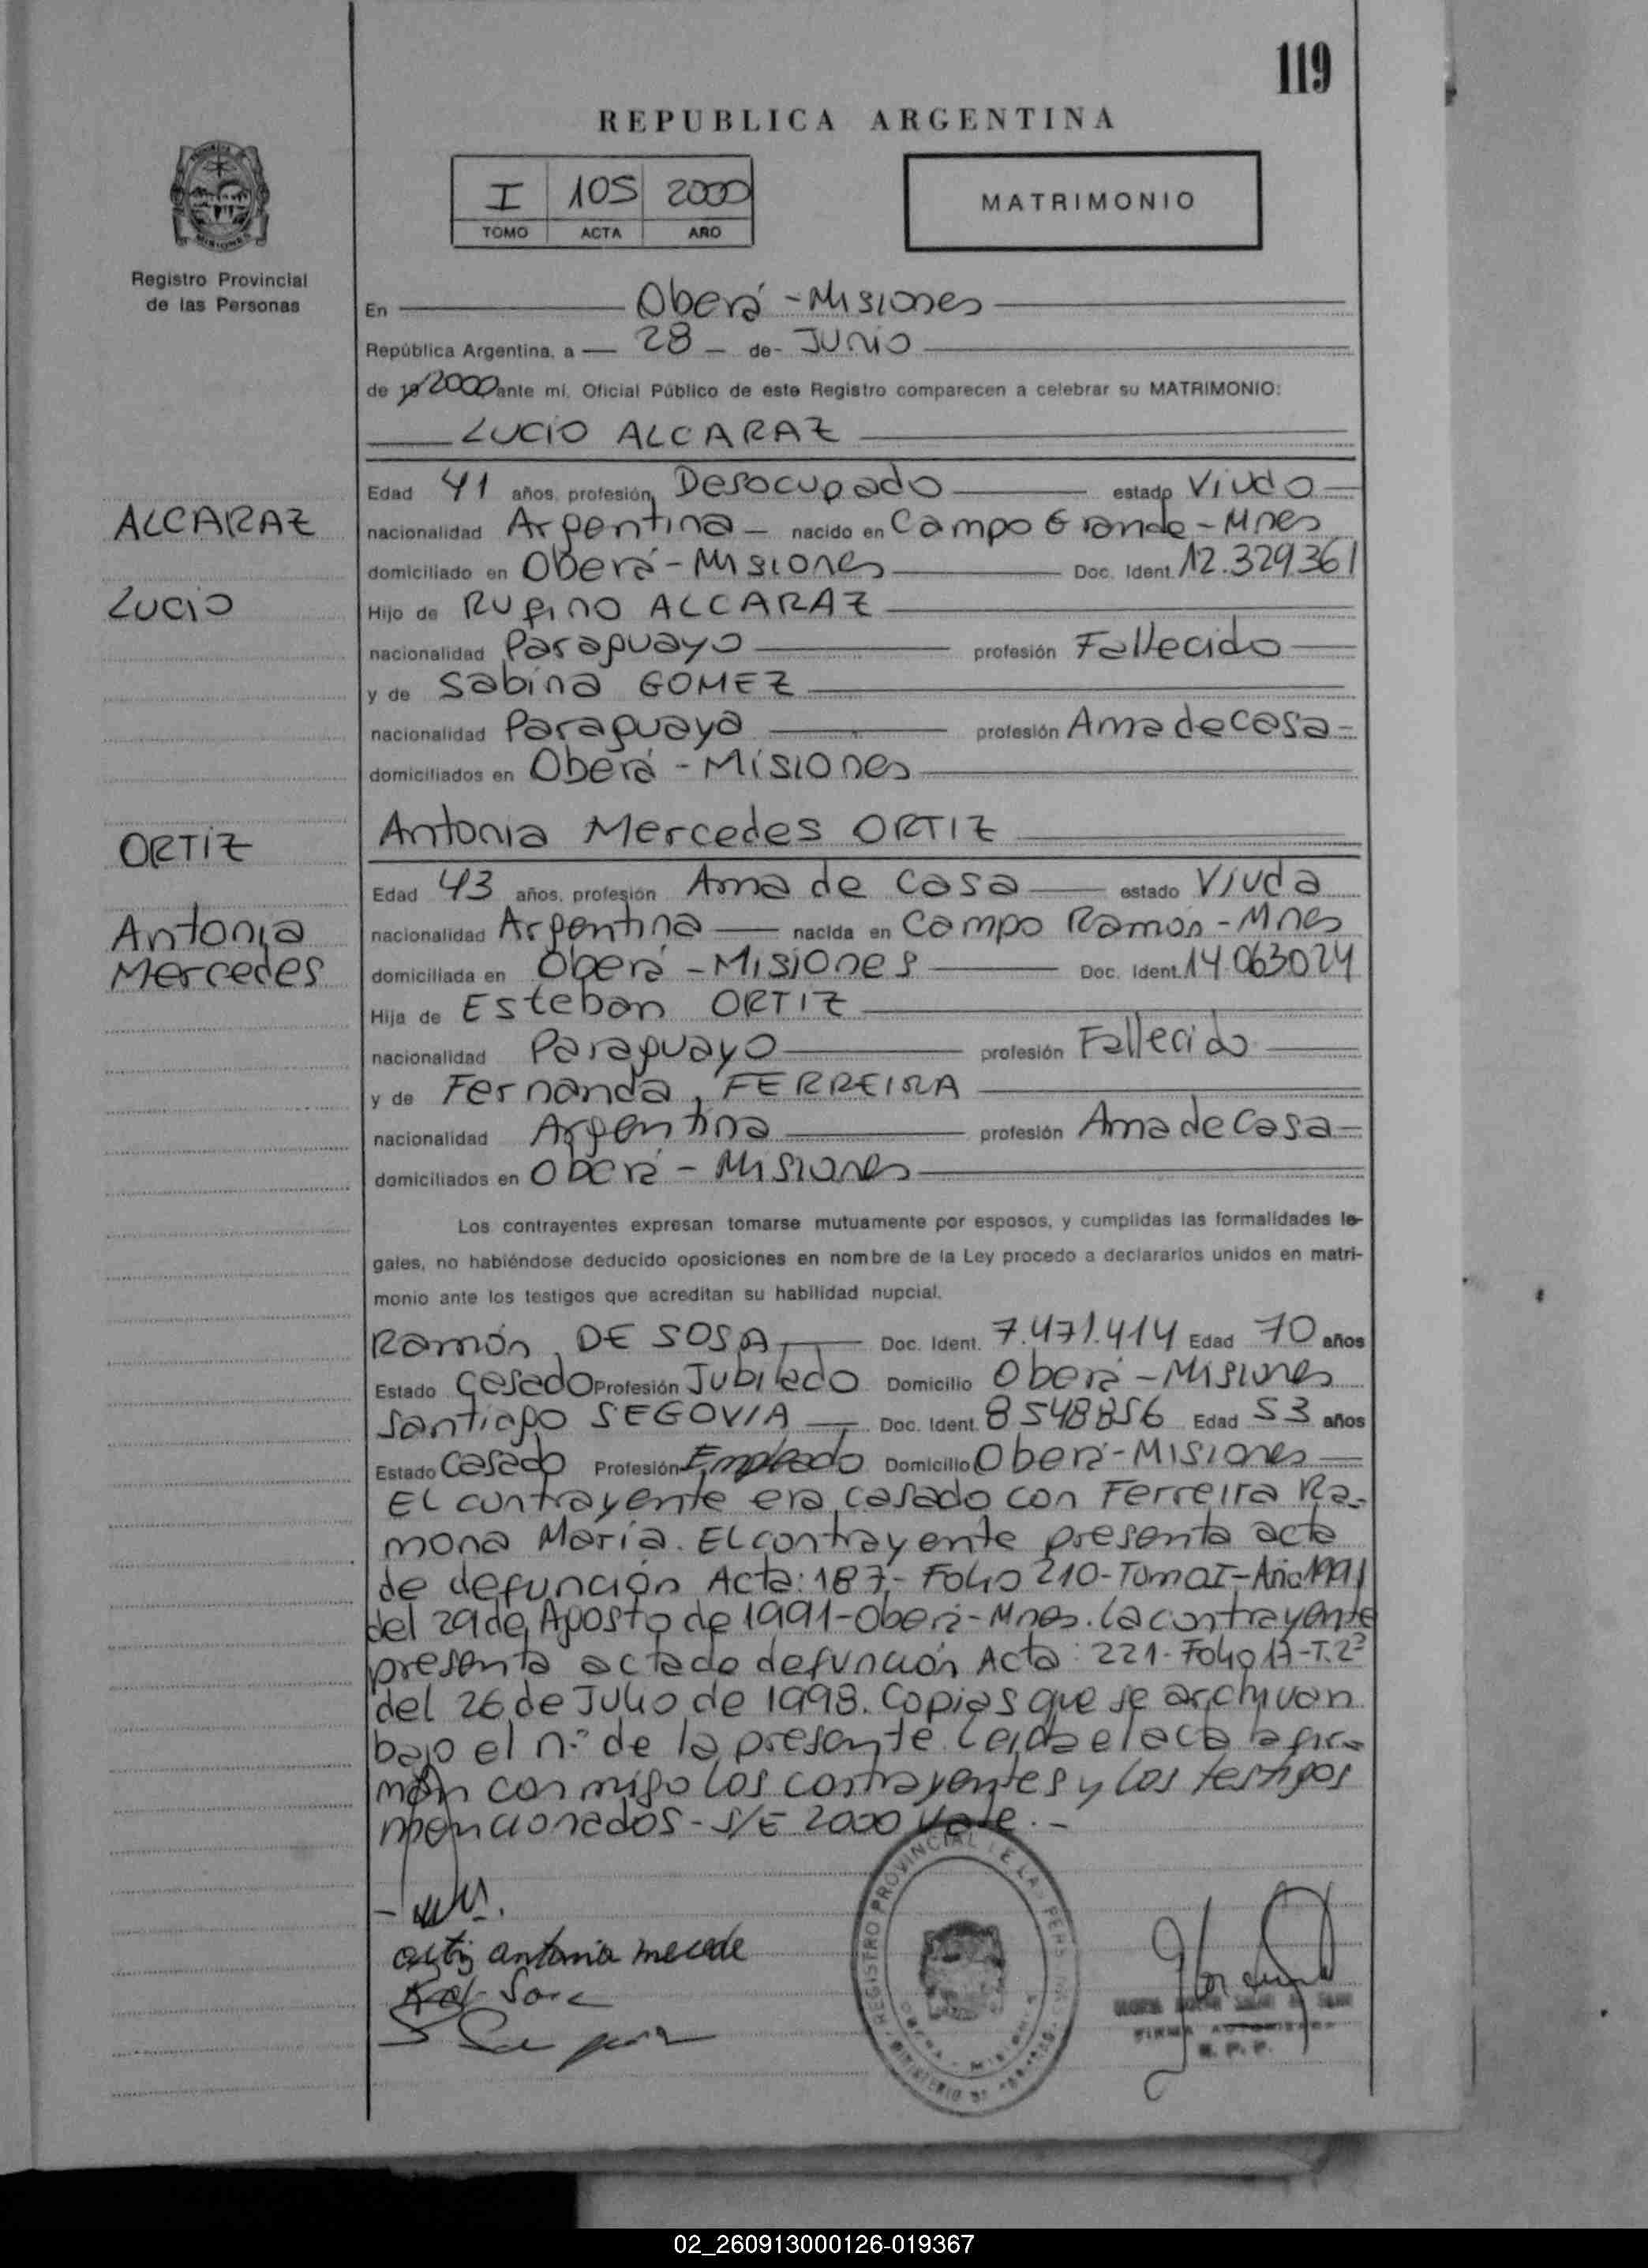 119
REPUBLICA ARGENTINA
I 105 2000
TOMO ACTA AÑO
MATRIMONIO
Registro Provincial
de las Personas
En Oberá - Misiones
República Argentina, a 28 de Junio
de 19 2000 ante mí, Oficial Público de este Registro comparecen a celebrar su MATRIMONIO:
LUCIO ALCARAZ
Edad 41 años, profesión Desocupado estado Viudo
ALCARAZ
nacionalidad Argentina nacido en Campo Grande - Mnes
domiciliado en Oberá - Misiones Doc. Ident. 12.329.361
Lucio
Hijo de Rufino ALCARAZ
nacionalidad Paraguayo profesión Fallecido
y de Sabina GOMEZ
nacionalidad Paraguaya profesión Ama de casa
domiciliados en Oberá - Misiones
ORTIZ
Antonia Mercedes ORTIZ
Edad 43 años, profesión Ama de casa estado Viuda
Antonia
nacionalidad Argentina nacida en Campo Ramón - Mnes
Mercedes
domiciliada en Oberá - Misiones Doc. Ident. 14.063024
Hija de Esteban ORTIZ
nacionalidad Paraguayo profesión Fallecido
y de Fernanda FERREIRA
nacionalidad Argentina profesión Ama de Casa
domiciliados en Oberá - Misiones
Los contrayentes expresan tomarse mutuamente por esposos, y cumplidas las formalidades le-
gales, no habiéndose deducido oposiciones en nombre de la Ley procedo a declararlos unidos en matri-
monio ante los testigos que acreditan su habilidad nupcial.
Ramón DE SOSA Doc. Ident. 7.471.414 Edad 70 años
Estado Casado Profesión Jubilado Domicilio Oberá - Misiones
Santiago SEGOVIA Doc. Ident. 8548856 Edad 53 años
Estado Casado Profesión Empleado Domicilio Oberá - Misiones
El contrayente era casado con Ferreira Ra-
mona María. El contrayente presenta acta
de defunción Acta: 187 - Folio 210 - Tomo I - Año 1991
del 29 de Agosto de 1991 - Oberá - Mnes. La contrayente
presenta acta de defunción Acta: 221 - Folio 17 - T. 2º
del 26 de Julio de 1998. Copias que se archivan
bajo el nº de la presente. Leida el acta la fir-
man conmigo los contrayentes y los testigos
mencionados - S/E 2000 Vale. -
REGISTRO PROVINCIAL DE LAS PERSONAS
FIRMA AUTORIZADA
R. P. P.
02_260913000126-019367